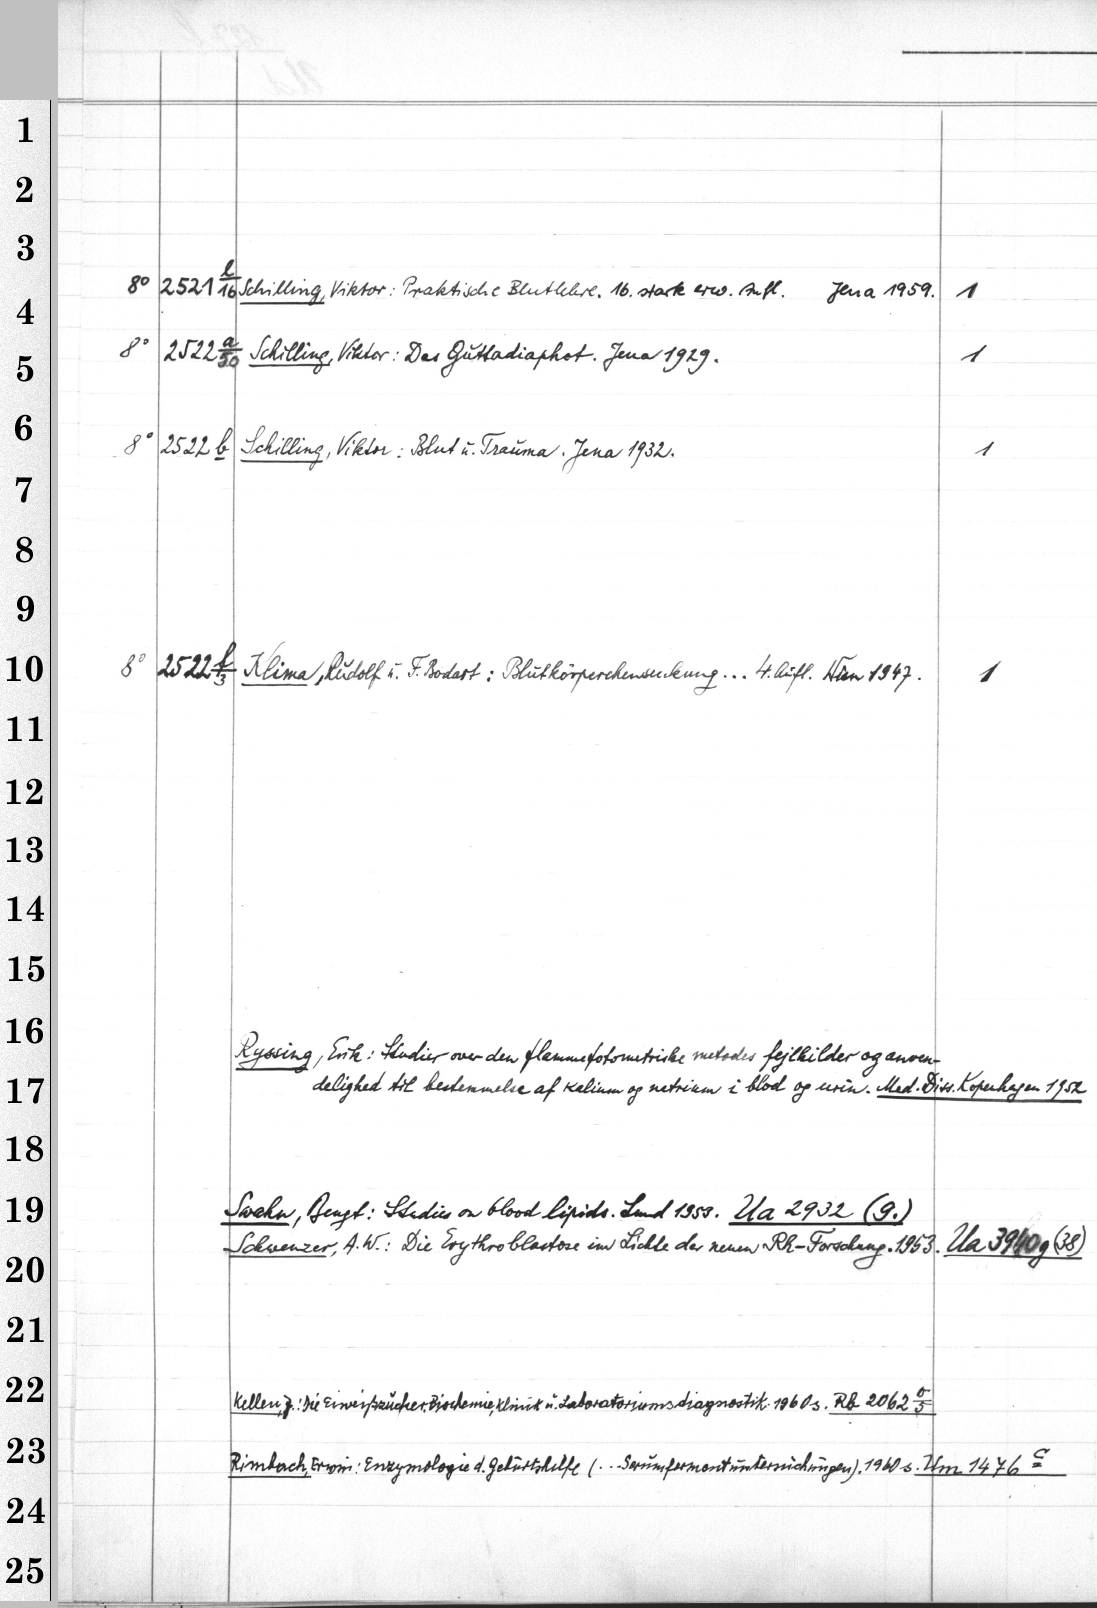 1
2
3
8° 2521 l/16 Schilling, Viktor: Praktische Blutlehre. 16. stark erw. Aufl. Jena 1959. 1
4
8° 2522 a/50 Schilling, Viktor: Das Guttadiaphot. Jena 1929. 1
5
6
8° 2522 b Schilling, Viktor: Blut u. Trauma. Jena 1932. 1
7
8
9
10
8° 2522 f/3 Klima, Rudolf u. F. Bodart: Blutkörperchensenkung... 4. Aufl. Wien 1947. 1
11
12
13
14
15
16
Ryssing, Erik: Studier over den flammefotometriske metodes fejlkilder og anven-
17
delighed til bestemmelse af kalium og natrium i blod og urin. Med. Diss. Kopenhagen 1952
18
19
Swahn, Bengt: Studies on blood lipids. Lund 1953. Ua 2932 (9.)
Schwenzer, A.W.: Die Erythroblastose im Lichte der neuen Rh-Forschung. 1953. Ua 3940g (38)
20
21
22
Kellen, J.: Die Eiweißzucker. Biochemie, Klinik u. Laboratoriumsdiagnostik. 1960 s. Rb 2062 o/5
23
Rimbach, Erwin: Enzymologie d. Geburtshilfe (...Serumfermentuntersuchungen). 1960 s. Um 1476 c
24
25